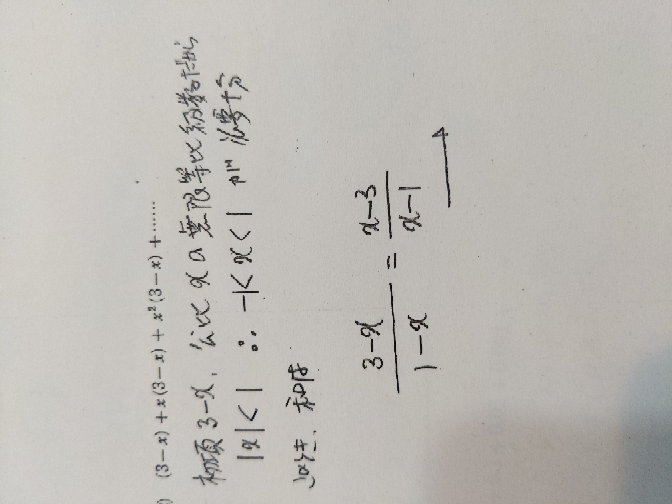 ) (3−x)+x(3−x)+x²(3−x)+……
初項 3−x, 公比 x の無限等比級数だから
|x|<1 ∴ −1<x<1 が必要十分
このとき、和は
\frac{3−x}{1−x} = \frac{x−3}{x−1}